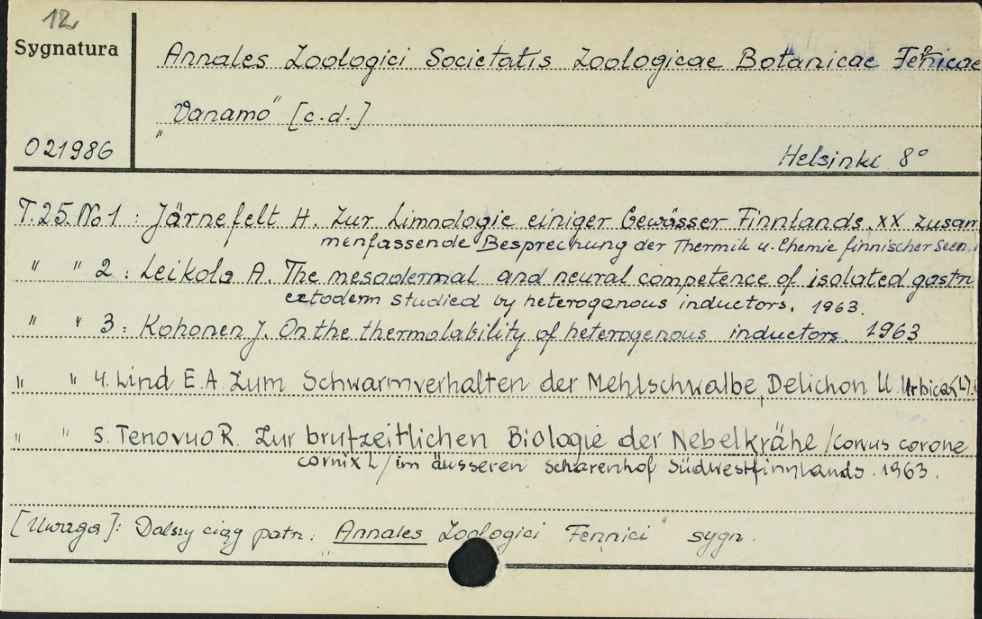 12.
Sygnatura
Annales Zoologici Societatis Zoologicae Botanicae Fenicae
"Vanamo" [c.d.]
021986
Helsinki 8°
T.25. No 1 : Järnefelt H. Zur Limnologie einiger Gewässer Finnlands. XX Zusam
menfassende Besprechung der Thermik u. Chemie finnischer Seen.
" " 2 : Leikola A. The mesodermal and neural competence of isolated gastr
ectoderm studied by heterogenous inductors. 1963.
" " 3 : Kohonen J. On the thermolability of heterogenous inductors. 1963
" " 4. Lind E.A. Zum Schwarmverhalten der Mehlschwalbe, Delichon U. Urbica (L).
" " 5. Tenovuo R. Zur brutzeitlichen Biologie der Nebelkrähe /corvus corone
cornix L/ im äusseren Schärenhof Südwestfinnlands. 1963.
[Uwaga]: Dalszy ciąg patrz: "Annales Zoologici Fennici" sygn.